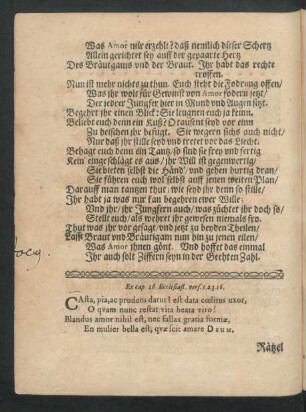 Was Amor mir erzehlt? daß nemlich dieser Schertz
Allein gerichtet sey auff der gepaarte Hertz
Des Bräutgams vnd der Braut. Ihr habt das rechte
troffen.
Nun ist mehr nichts zu thun. Euch steht die Fodrung offen/
Was ihr wolt für Gewinst von Amor fodern jetzt/
Der jedrer Jungfer hier in Mund vnd Augen sitzt.
Begehrt ihr einen Blick? Sie leugnen euch ja keinn.
Beliebt euch denn ein Kuß? O tausent sind vor einn
Zu heischen ihr befugt. Sie wegern sichs auch nicht/
Nur daß ihr stille seyd vnd tretet vor das Liecht.
Behagt euch denn ein Tantz/ so sind sie frey vnd fertig
Kein einge schlägt es aus/ ihr Will ist gegenwertig/
Sie bieten selbst die Händ/ vnd gehen hurtig dran/
Sie führen euch wol selbst auff jenen weiten Plan/
Darauff man tantzen thut: wie seyd ihr denn so stille/
Ihr habt ja was nur kan begehren ewer Wille:
Vnd ihr/ ihr Jungfern auch/ was züchtet ihr doch so/
Stellt euch/ als wehret ihr gewesen niemals fro.
Thut was ihr vor gesagt/ vnd jetzt zu beyden Theilen/
Lasst Braut vnd Bräutgam nun hin zu jenen eilen/
Was Amor ihnen gönt. Vnd hoffet das einmal
Ihr auch solt Ziffern seyn in der Geehten Zahl.
Ex cap. 26 Ecclesiast. vers. 1.23.16.
CAsta, pia, ac prudens datur! est data cœlitus uxor,
O quam nunc restat vita beata viro!
Blandus amor nihil est, nec fallax gratia formæ,
En mulier bella est, quæ scit amare DEUM.
Rätzel